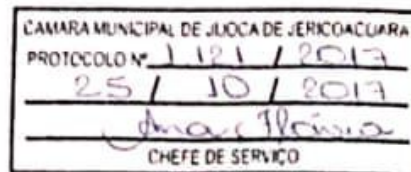 CAMARA MUNICIPAL DE JIJOCA DE JERICOACOARA
PROTOCOLO Nº 1.121 / 2017
25 / 10 / 2017
Ana Flávia
CHEFE DE SERVIÇO